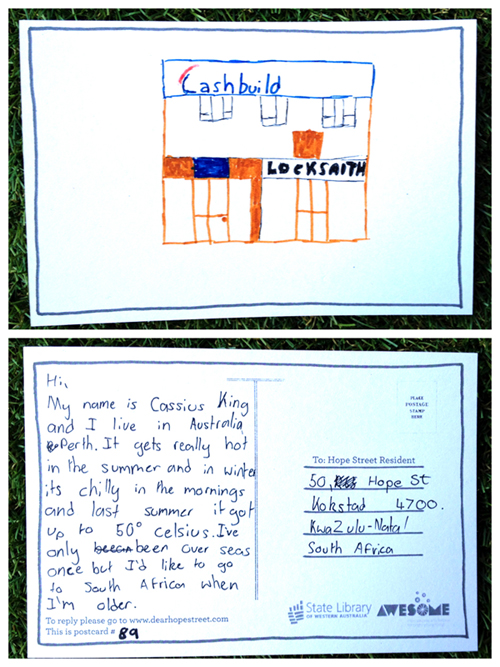 Cashbuild
LOCKSMITH
Hi,
My name is Cassius King
and I live in Australia,
Perth. It gets really hot
in the summer and in winter
its chilly in the mornings
and last summer it got
up to 50° celsius. I've
only been over seas
once but I'd like to go
to South Africa when
I'm older.
To reply please go to www.dearhopestreet.com
This is postcard # 89
PLACE
POSTAGE
STAMP
HERE
To: Hope Street Resident
50, Hope St
Kokstad 4700.
KwaZulu-Natal
South Africa
State Library
OF WESTERN AUSTRALIA
AWESOME